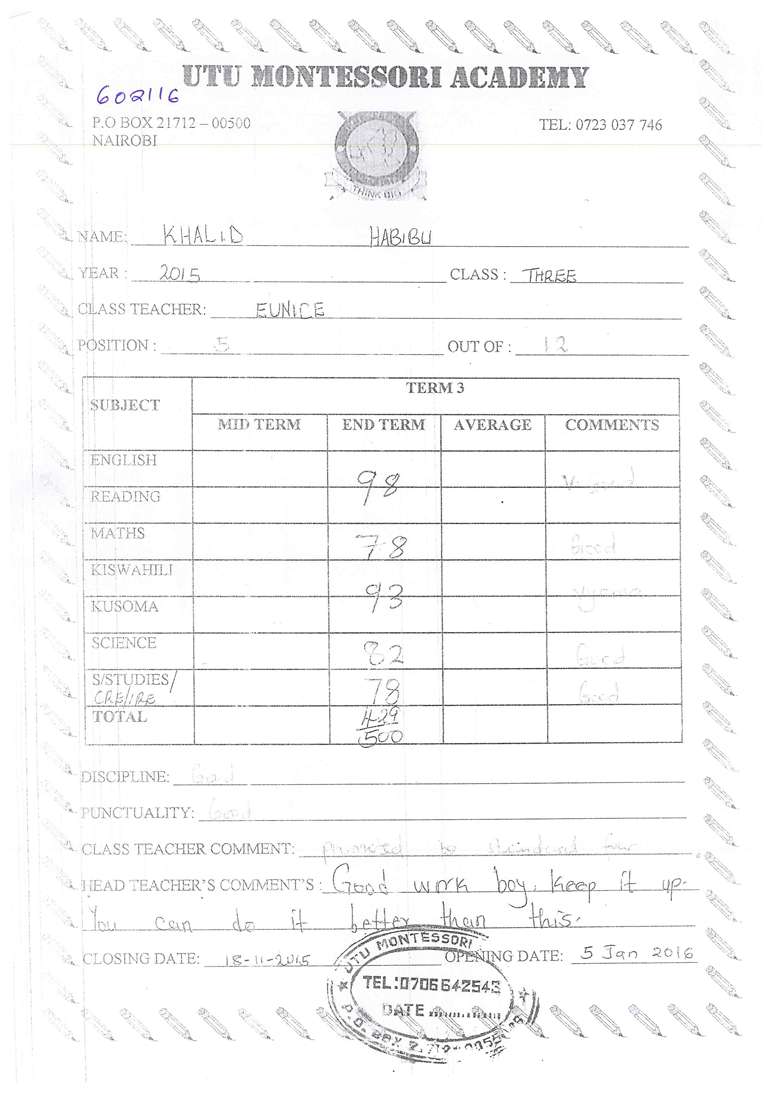 UTU MONTESSORI ACADEMY
602116
P.O BOX 21712 – 00500
TEL: 0723 037 746
NAIROBI
THINK BIG
NAME: KHALID HABIBU
YEAR : 2015 CLASS : THREE
CLASS TEACHER: EUNICE
POSITION : 5 OUT OF : 12
SUBJECT TERM 3
MID TERM END TERM AVERAGE COMMENTS
ENGLISH
98
READING
MATHS 78 Good
KISWAHILI
93
KUSOMA
SCIENCE 82 Good
S/STUDIES/ CRE/IRE 78 Good
TOTAL 429/500
DISCIPLINE: Good
PUNCTUALITY: Good
CLASS TEACHER COMMENT: promoted to standard four
HEAD TEACHER'S COMMENT'S : Good work boy. Keep it up.
You can do it better than this.
CLOSING DATE: 18-11-2015 OPENING DATE: 5 Jan 2016
UTU MONTESSORI
TEL:0706642543
DATE
P.O. BOX